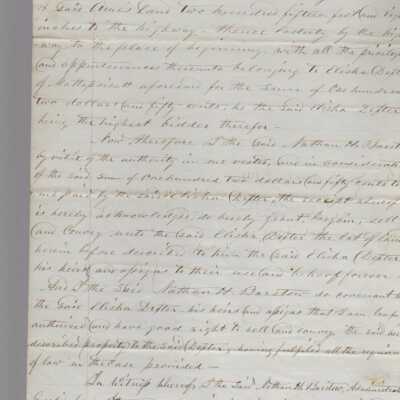 of said Ame's Land two hundred fifteen feet and eight
inches to the highway - thence easterly by the high
way to the place of beginning, with all the privileges
and appurtenances thereunto belonging to Elisha Dexter
of Mattapoisett aforesaid for the sum of One hundred
two dollars and fifty cents, he the said Elisha Dexter
being the highest bidder therefor -
Now therefore I the said Nathan H. Barstow
by virtue of the authority in me vested, and in consideration
of the said sum of One hundred two dollars and fifty cents to
me paid by the said Elisha Dexter, the receipt whereof
is hereby acknowledged, do hereby grant, bargain, sell
and Convey unto the said Elisha Dexter the lot of land
herein before described to him the said Elisha Dexter
his heirs and assigns to their use and behoof forever
And I the said Nathan H. Barstow do covenant with
the said Elisha Dexter his heirs and assigns that I am
authorized and have good right to sell and convey the said
described property to the said Dexter, having fulfilled all the requirements
of law in the case provided -
In Witness whereof I the said Nathan H. Barstow, Administrator